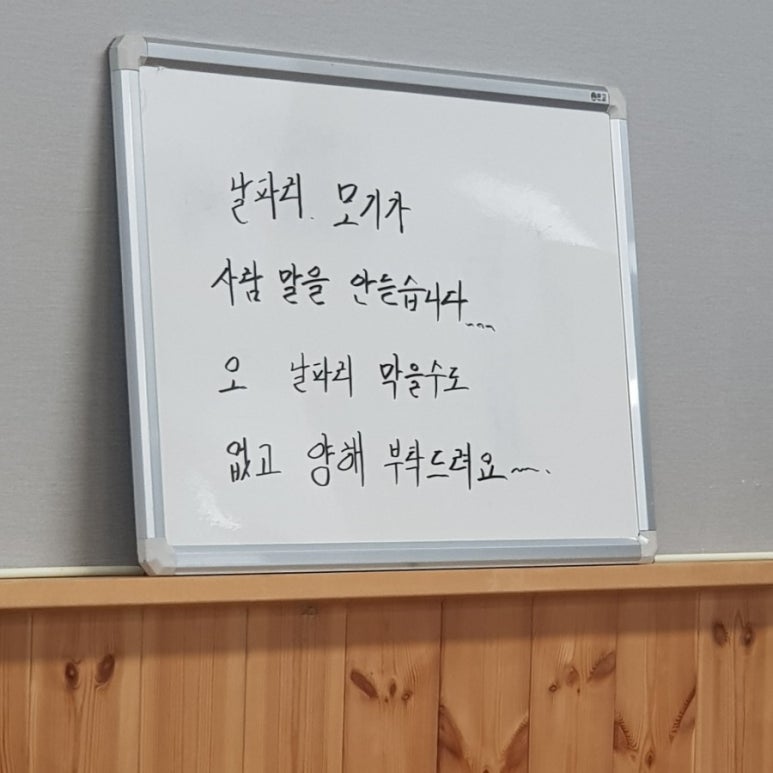 날파리. 모기가
사람 말을 안듣습니다~~~
오 날파리 막을수도
없고 양해 부탁드려요~~.